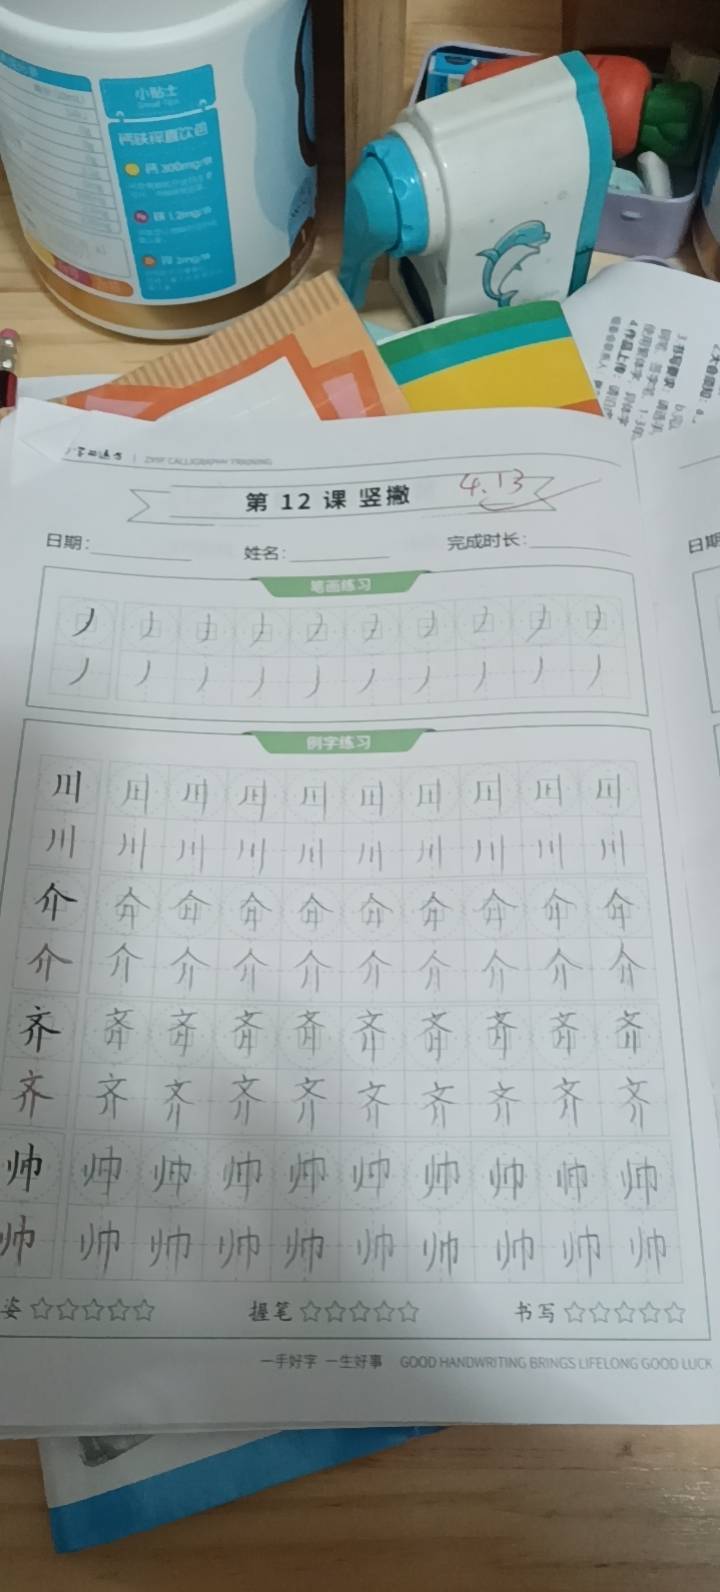 小贴士
钙 300mg
铁 1.2mg
锌 2mg
ZXSF CALLIGRAPHY TRAINING
第 12 课 竖撇 4.13
日期: 姓名: 完成时长:
日期
笔画练习
例字练习
川 川 川 川 川 川 川 川 川 川
川 川 川 川 川 川 川 川 川 川
介 介 介 介 介 介 介 介 介 介
介 介 介 介 介 介 介 介 介 介
齐 齐 齐 齐 齐 齐 齐 齐 齐 齐
齐 齐 齐 齐 齐 齐 齐 齐 齐 齐
帅 帅 帅 帅 帅 帅 帅 帅 帅 帅
帅 帅 帅 帅 帅 帅 帅 帅 帅 帅
姿 握笔 书写
一手好字 一生好事 GOOD HANDWRITING BRINGS LIFELONG GOOD LUCK